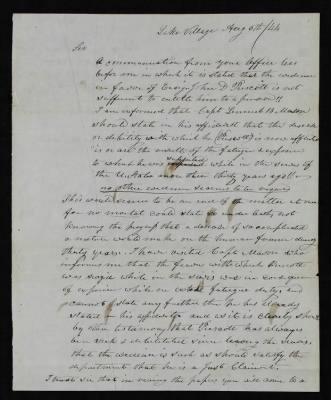 Lake Village Augt 6th /44
Sir
A communication from your Office lies
before me in which it is stated that the evidence
in favor of D Prescott is not
sufficient to entitle him to a pension
I am informed that Capt Lemuel B. Mason
should state in his affidavit that the disease
or debility with which he (Prescott) is now afflicted
is or are the result of the fatigue & exposure
to which he was subjected while in the service of
the U. States more than thirty years ago
no other evidence seems to be required
This would seem to be an end of the matter at once
for no mortal could state so under oath, not
knowing the progress that a disease of so complicated
a nature would make on the human frame during
thirty years. I have visited Capt Mason who
informs me that the fever with which Prescott
was seized while in the service was in consequence
of exposure while on fatigue duty, and
cannot state any further than he has already
stated in his affidavit and as it is clearly shown
by other testimony that Prescott has always
been weak & debilitated since leaving the service
that the evidence is such as should satisfy the
department that he is a just Claimant.
I trust sir that in viewing the papers you will come to a